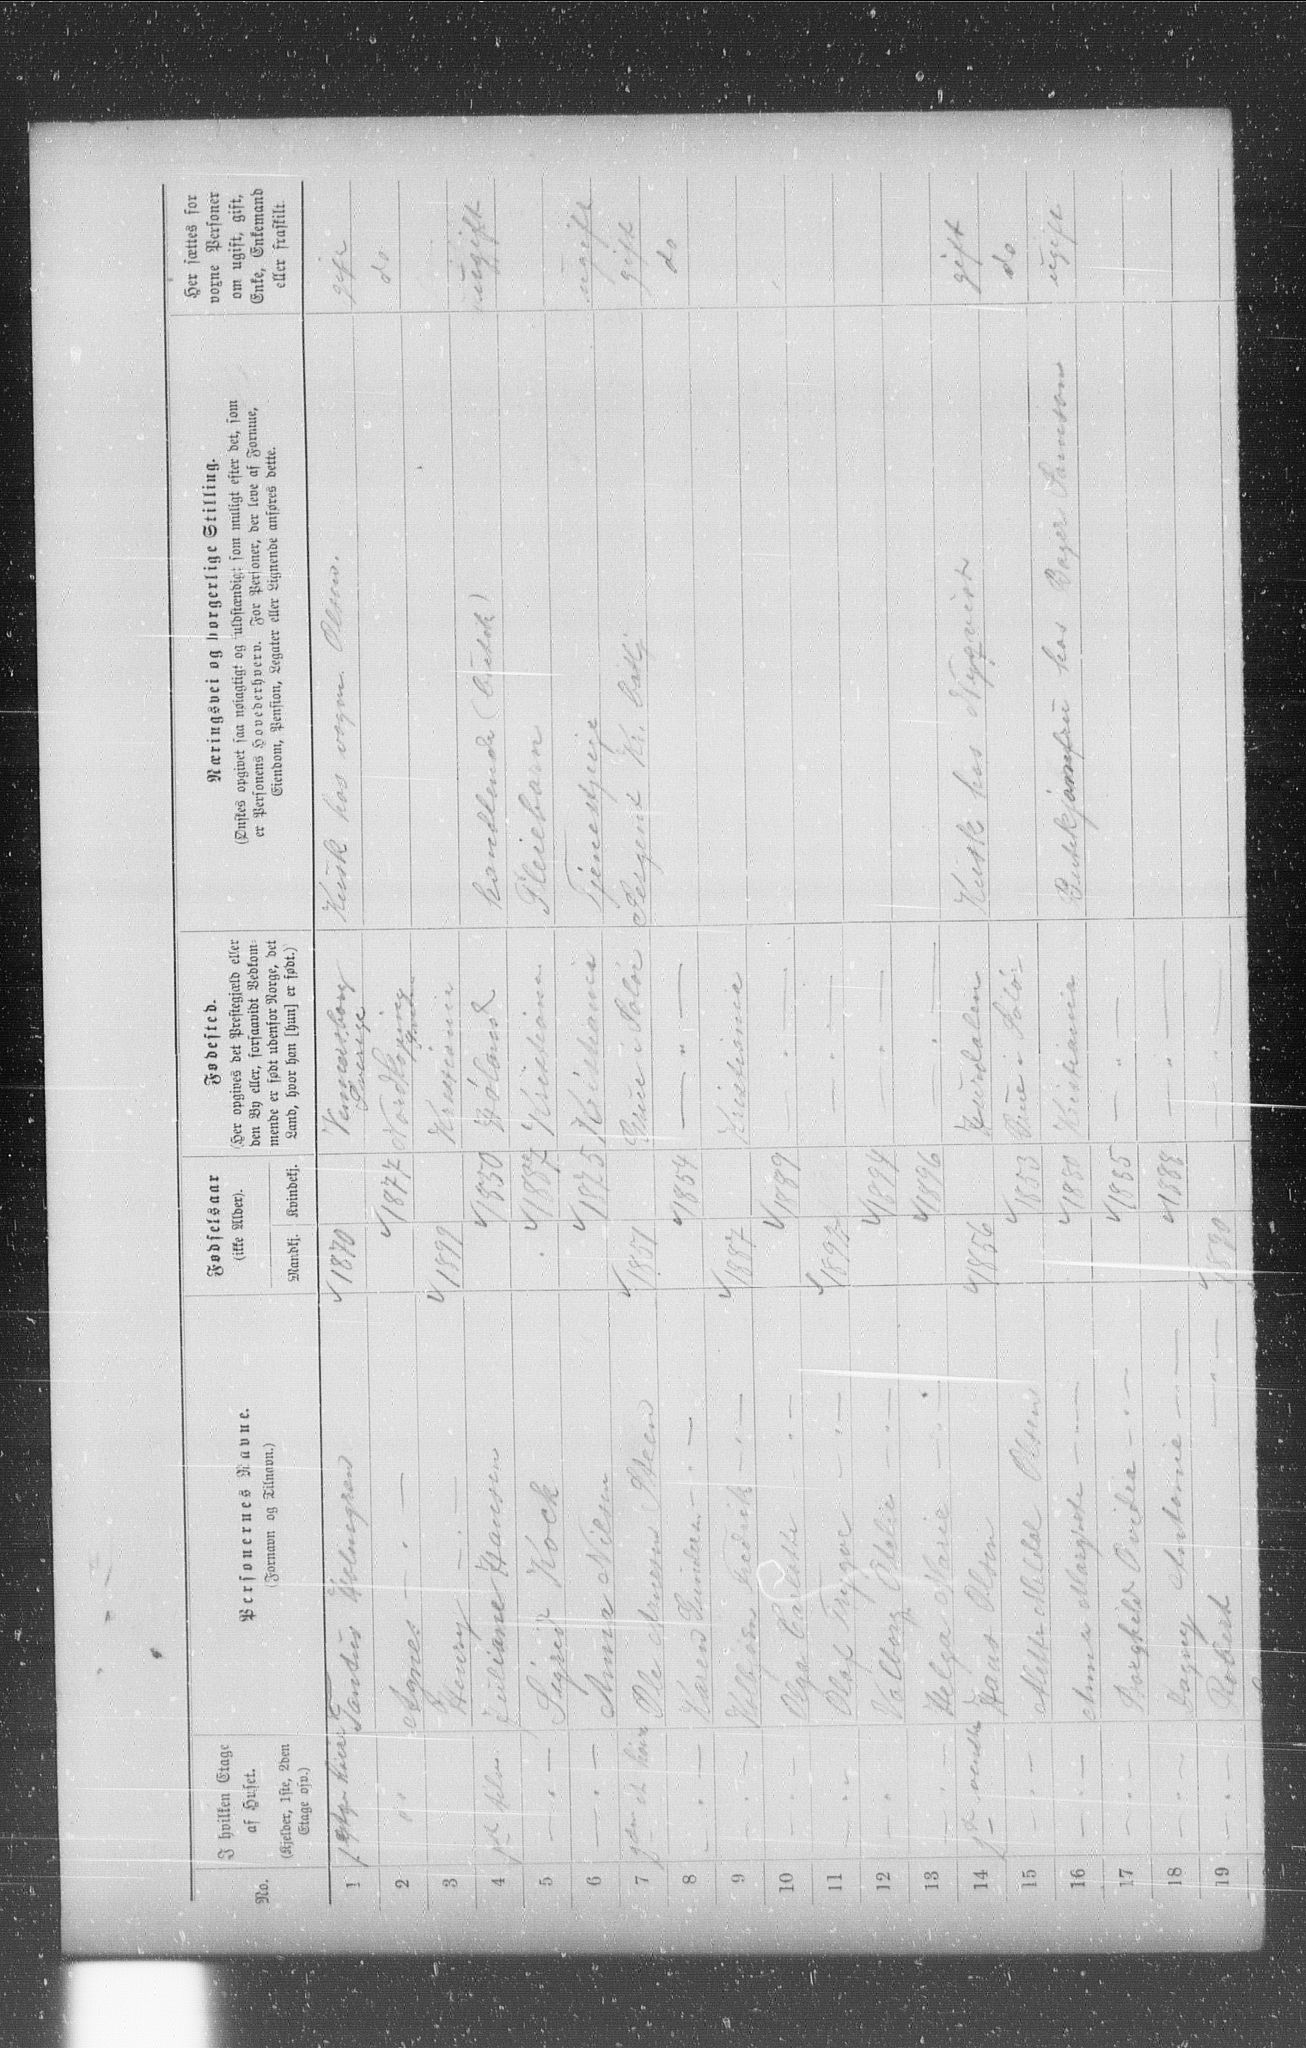 No.
I hvilken Etage af Huset.
(Kjelder, 1ste, 2den Etage osv.)
Personernes Navne.
(Fornavn og Tilnavn.)
Fødselsaar
(ikke Alder).
Mandkj. Kvindekj.
Fødested.
(Her opgives det Prestegjæld eller den By eller, forsaavidt Vedkommende er født udenfor Norge, det Land, hvor han [hun] er født.)
Næringsvei og borgerlige Stilling.
(Ønskes opgivet saa nøiagtigt og uldstændigt som muligt efter det, som er Personens Hovederhverv. For Personer, der leve af Formue, Eiendom, Pension, Legater eller Lignende anføres dette.
Her sættes for voxne Personer om ugift, gift, Enke, Enkemand eller fraskilt
1 Holmgren 1870 Sverige Kusk hos vogm. Olsen. gift
2 do Agnes — " — 1877 Nordkøping do
3 Henry — " — 1899 Kristiania
4 Juliane Hansen 1850 Høland handlende ugift
5 — " — Sigrid Kock 1887 Kristiania Pleiebarn
6 — " — Anna Nilsen 1875 Kristiania Tjenestpige ugift
7 Ole Steen 1851 Grue Solør Sergent gift
8 — " — Karen — " — 1854 — " — do
9 — " — Kolbjørn Fredrik — " — 1887 Kristiania
10 — " — Olga — " — 1889 — " —
11 — " — Olaf Trygve — " — — " —
12 — " — Valborg — " — 1894 — " —
13 — " — Helga Marie — " — 1896 — " —
14 Hans Olsen 1856 Kusk hos Nyqvist gift
15 — " — Olsen 1853 Grue - Solør do
16 — " — Anna Margrete — " — 1880 Kristiania Butikjomfru hos Bager Samson ugift
17 — " — Borghild — " — 1885 — " —
18 — " — Dagny Antonie — " — 1888 — " —
19 — " — Robert — " — 1890 — " —